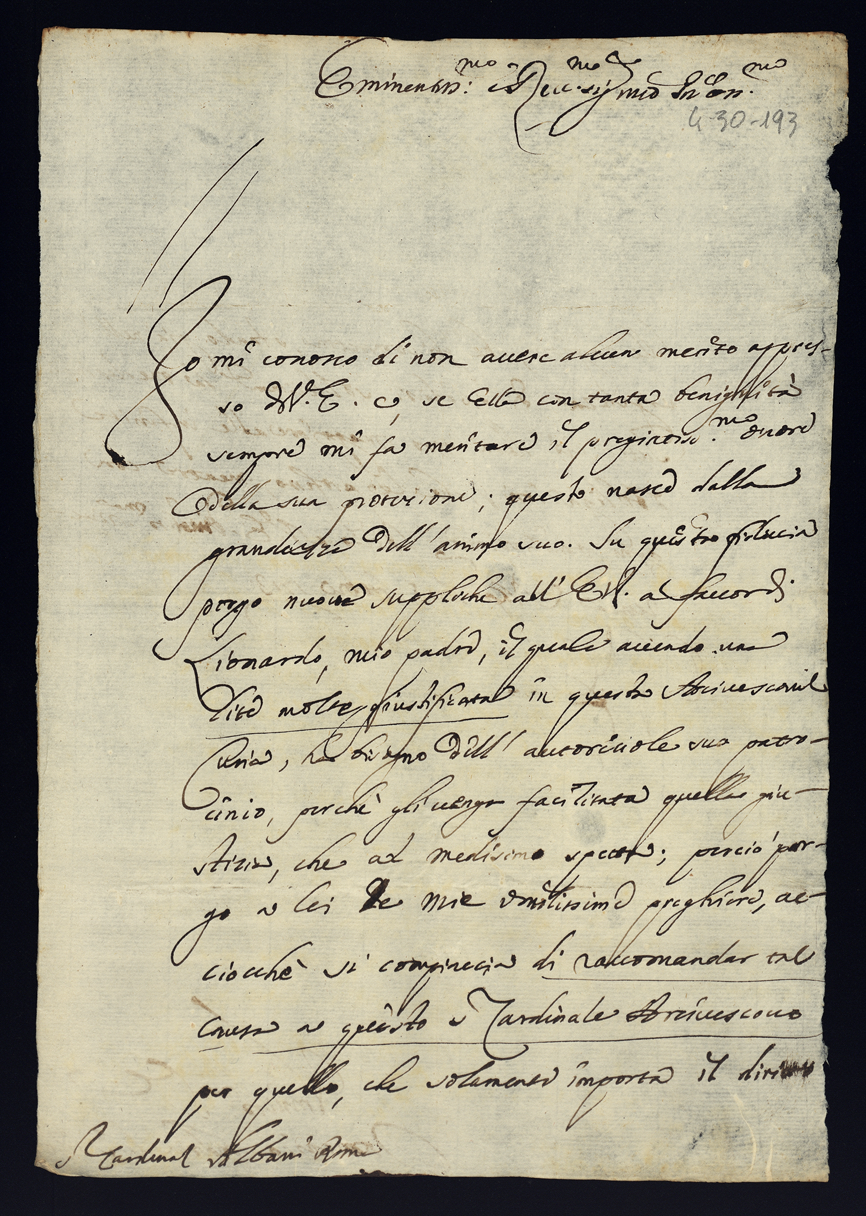 Eminentiss:mo e Rev:mo Sig.r mio Sig.r Oss.mo
4-30-193
Io mi conosco di non avere alcun merito appres-
so di V. E. e, se Ella con tanta benignità
sempre mi fa meritare il pregiatiss.mo onore
della sua protezione; questo nasce dalla
grandezza dell'animo suo. Su questa fiducia
porgo nuove suppliche all' E.V. a favor di
Lionardo, mio padre, il quale avendo una
lite molto giustificata in questa Arcivescovil
Curia, ha bisogno dell' autorevole suo patro-
cinio, perchè gli venga facilitata quella giu-
stizia, che al medesimo spetta; perciò por-
go a lei le mie umilissime preghiere, ac-
ciocchè si compiaccia di raccomandar tal
causa a questo S.r Cardinale Arcivescovo
per quello, che solamente importa il
S.r Cardinal Albani Roma